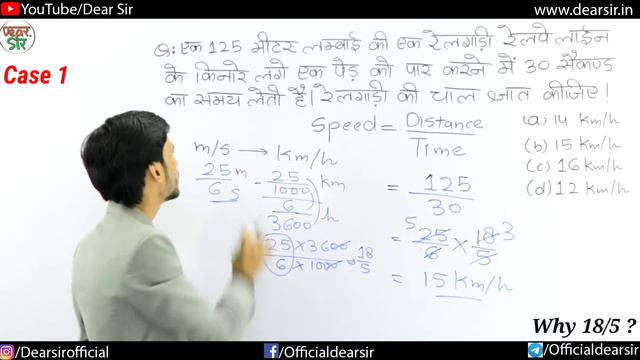 YouTube/Dear Sir
www.dearsir.in
DEAR SIR
Case 1
Q: एक 125 मीटर लम्बाई की एक रेलगाड़ी रेलवे लाईन
के किनारे लगे एक पेड़ को पार करने में 30 सैकण्ड
का समय लेती है। रेलगाड़ी की चाल ज्ञात कीजिए!
Speed = Distance
Time
(a) 14 Km/h
(b) 15 Km/h
(c) 16 Km/h
(d) 12 Km/h
m/s → Km/h
25 m
6 s
- 25 km
1000
6 h
3600
25 × 3600 = 18
6 × 1000 5
= 125
30
= 5 25 × 18 3
6 5
= 15 Km/h
Why 18/5 ?
/Dearsirofficial
/Officialdearsir
/Officialdearsir